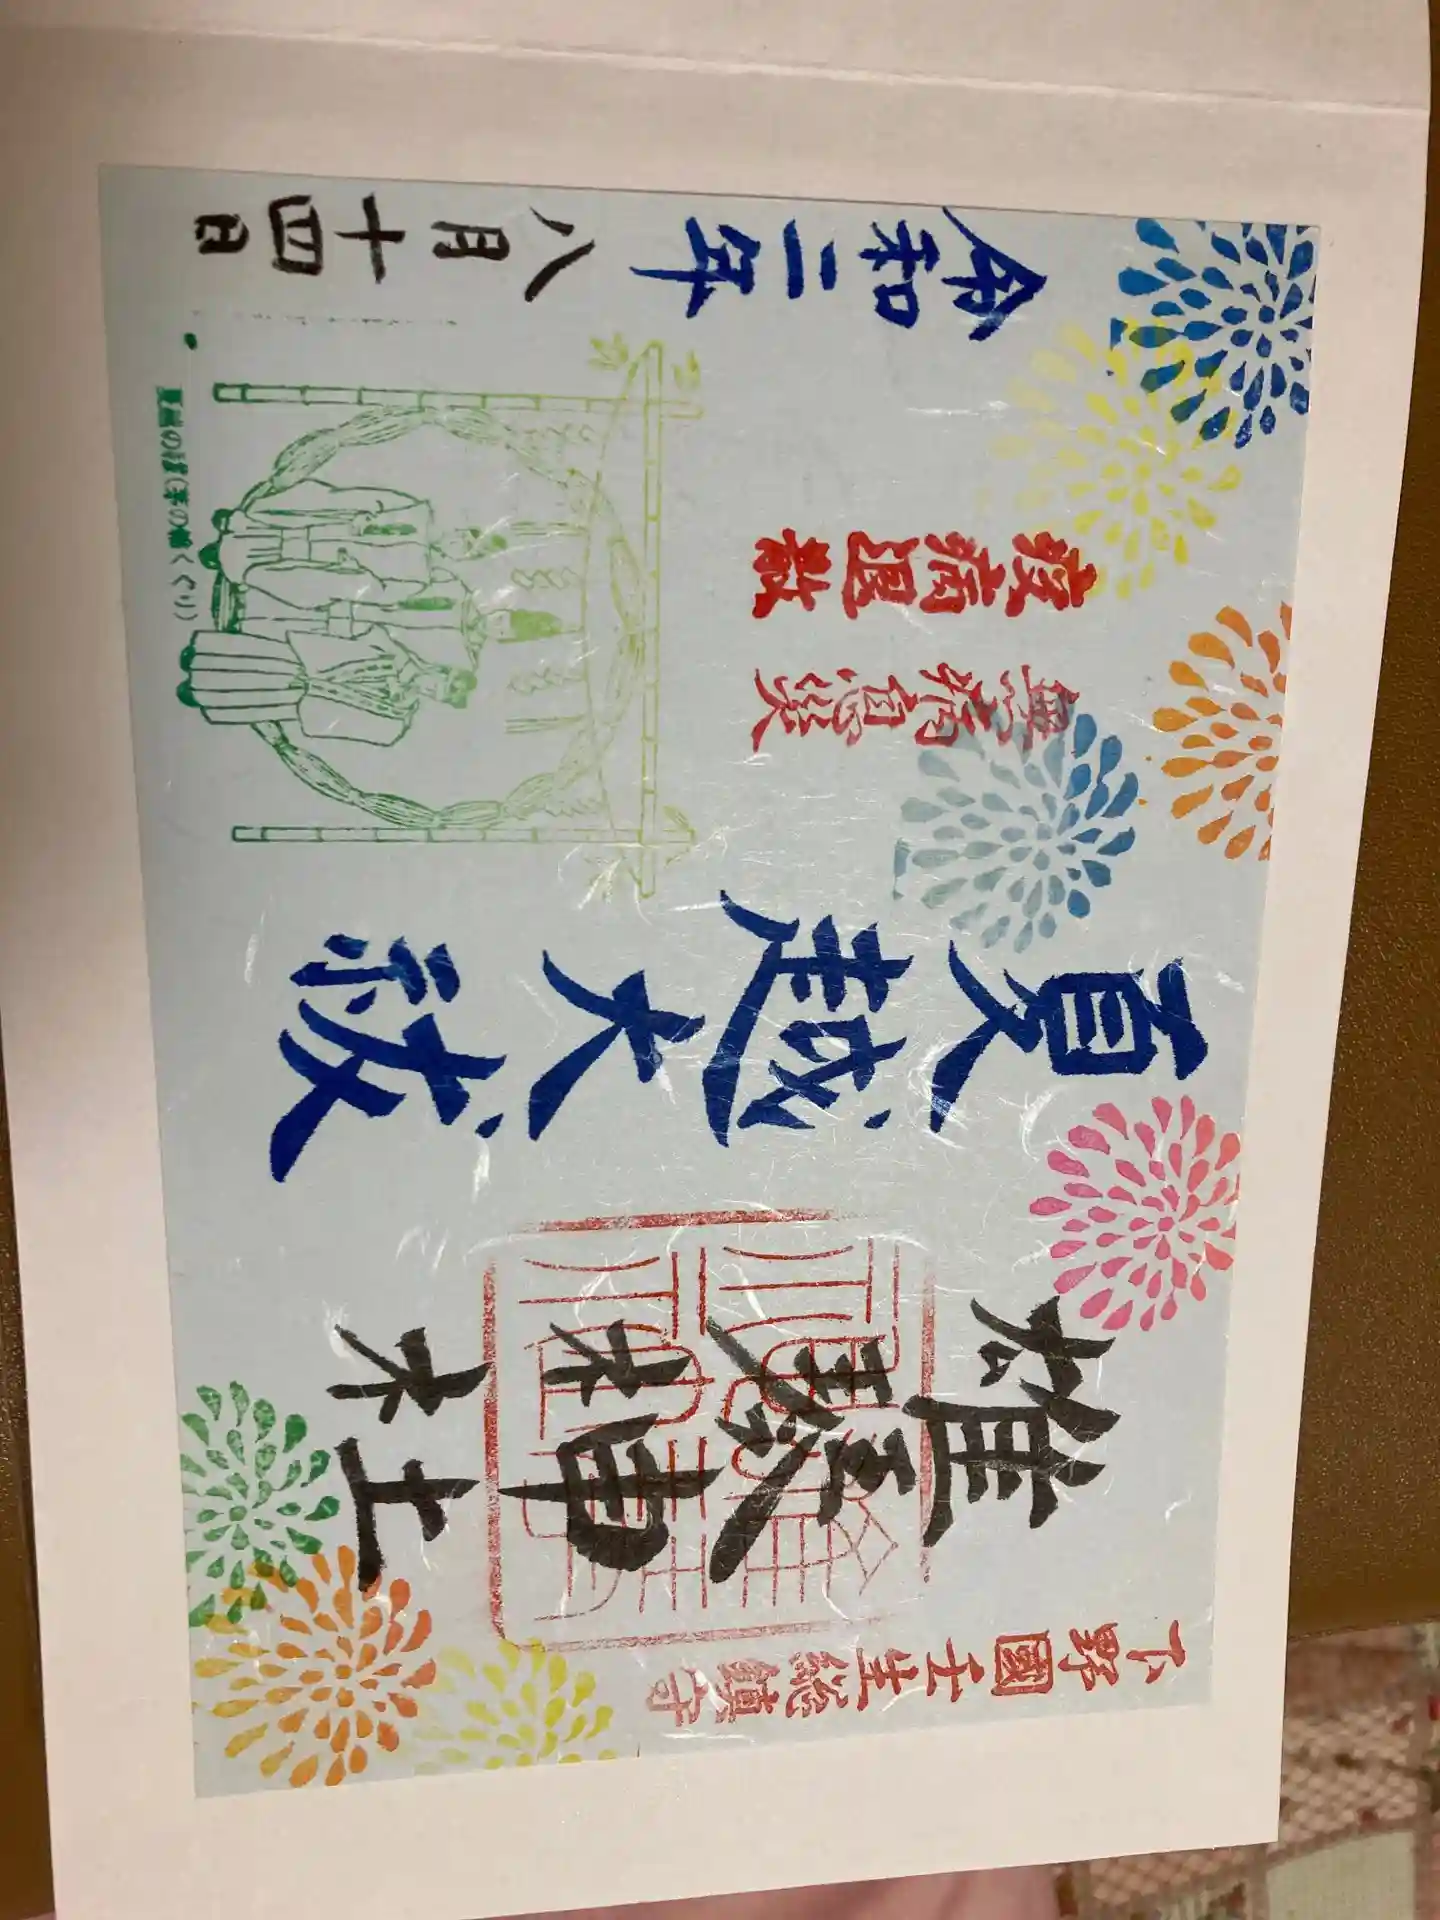 下野國壬生総鎮守
雄琴神社
夏越大祓
無病息災
疫病退散
夏越の祓(茅の輪くぐり)
令和二年八月十四日